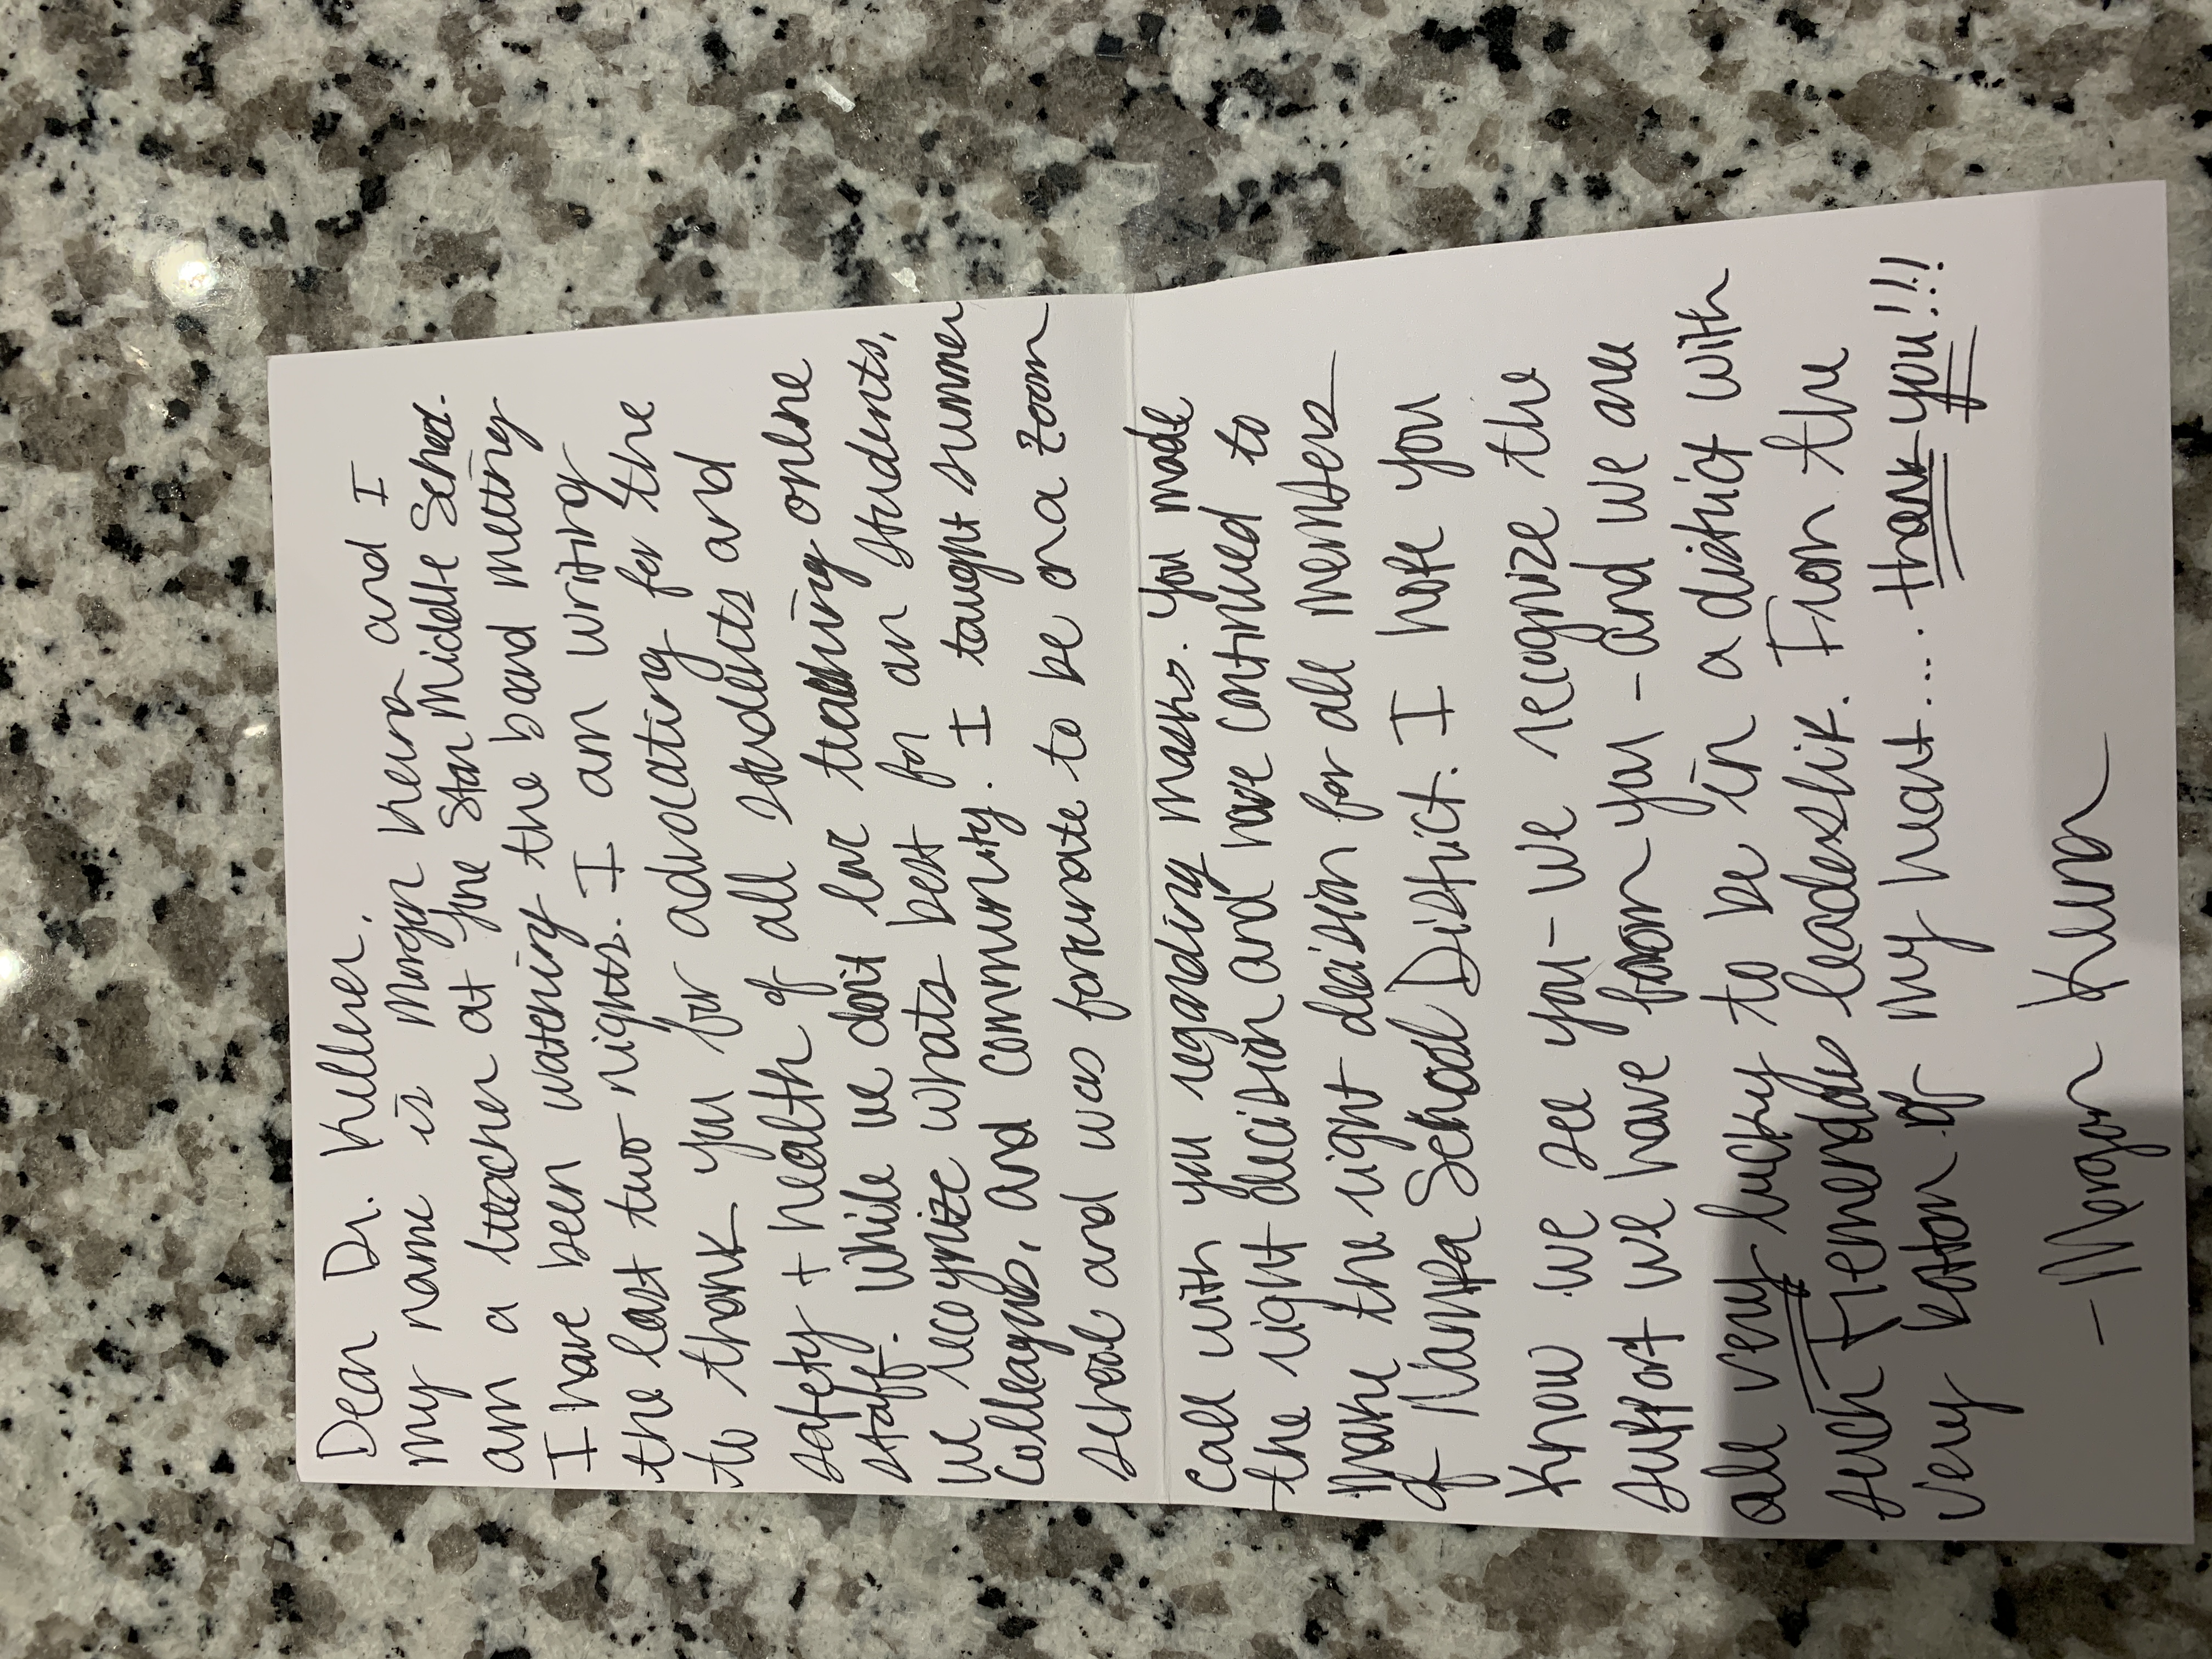 Dear Dr. Kellerer,
my name is Morgan Kuna and I
am a teacher at Lone Star Middle School.
I have been watching the board meeting
the last two nights. I am writing
to thank you for advocating for the
safety + health of all students and
staff. While we don't love teaching online
we recognize whats best for an students,
colleagues, and community. I taught summer
school and was fortunate to be on a zoom
call with you regarding masks. You made
the right decision and have continued to
make the right decision for all members
of Nampa School District. I hope you
know we see you - we recognize the
support we have from you - and we are
all very lucky to be in a district with
such tremendous leadership. From the
very bottom of my heart.... thank you!!!
- Morgan Kuna